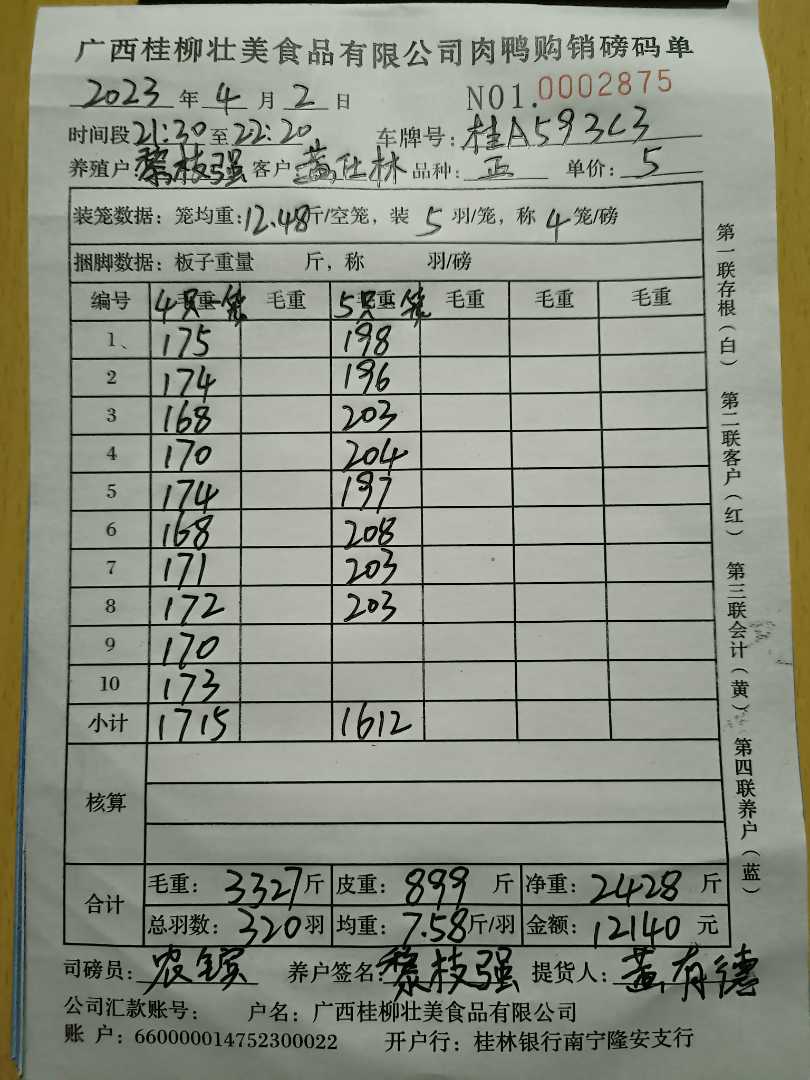 广西桂柳壮美食品有限公司肉鸭购销磅码单
2023 年 4 月 2 日 NO1.0002875
时间段 21:30 至 22:20 车牌号: 桂A593C3
养殖户 黎枝强 客户 黄仕林 品种: 正 单价: 5
装笼数据: 笼均重: 12.48 斤/空笼, 装 5 羽/笼, 称 4 笼/磅
捆脚数据: 板子重量 斤, 称 羽/磅
编号 4只一笼 毛重 毛重 5只一笼 毛重 毛重 毛重 毛重
1、 175 198
2 174 196
3 168 203
4 170 204
5 174 197
6 168 208
7 171 203
8 172 203
9 170
10 173
小计 1715 1612
核算
合计 毛重: 3327 斤 皮重: 899 斤 净重: 2428 斤
总羽数: 320 羽 均重: 7.58 斤/羽 金额: 12140 元
司磅员: 农 养户签名: 黎枝强 提货人: 黄有德
公司汇款账号: 户名: 广西桂柳壮美食品有限公司
账 户: 660000014752300022 开户行: 桂林银行南宁隆安支行
第一联存根(白) 第二联客户(红) 第三联会计(黄) 第四联养户(蓝)